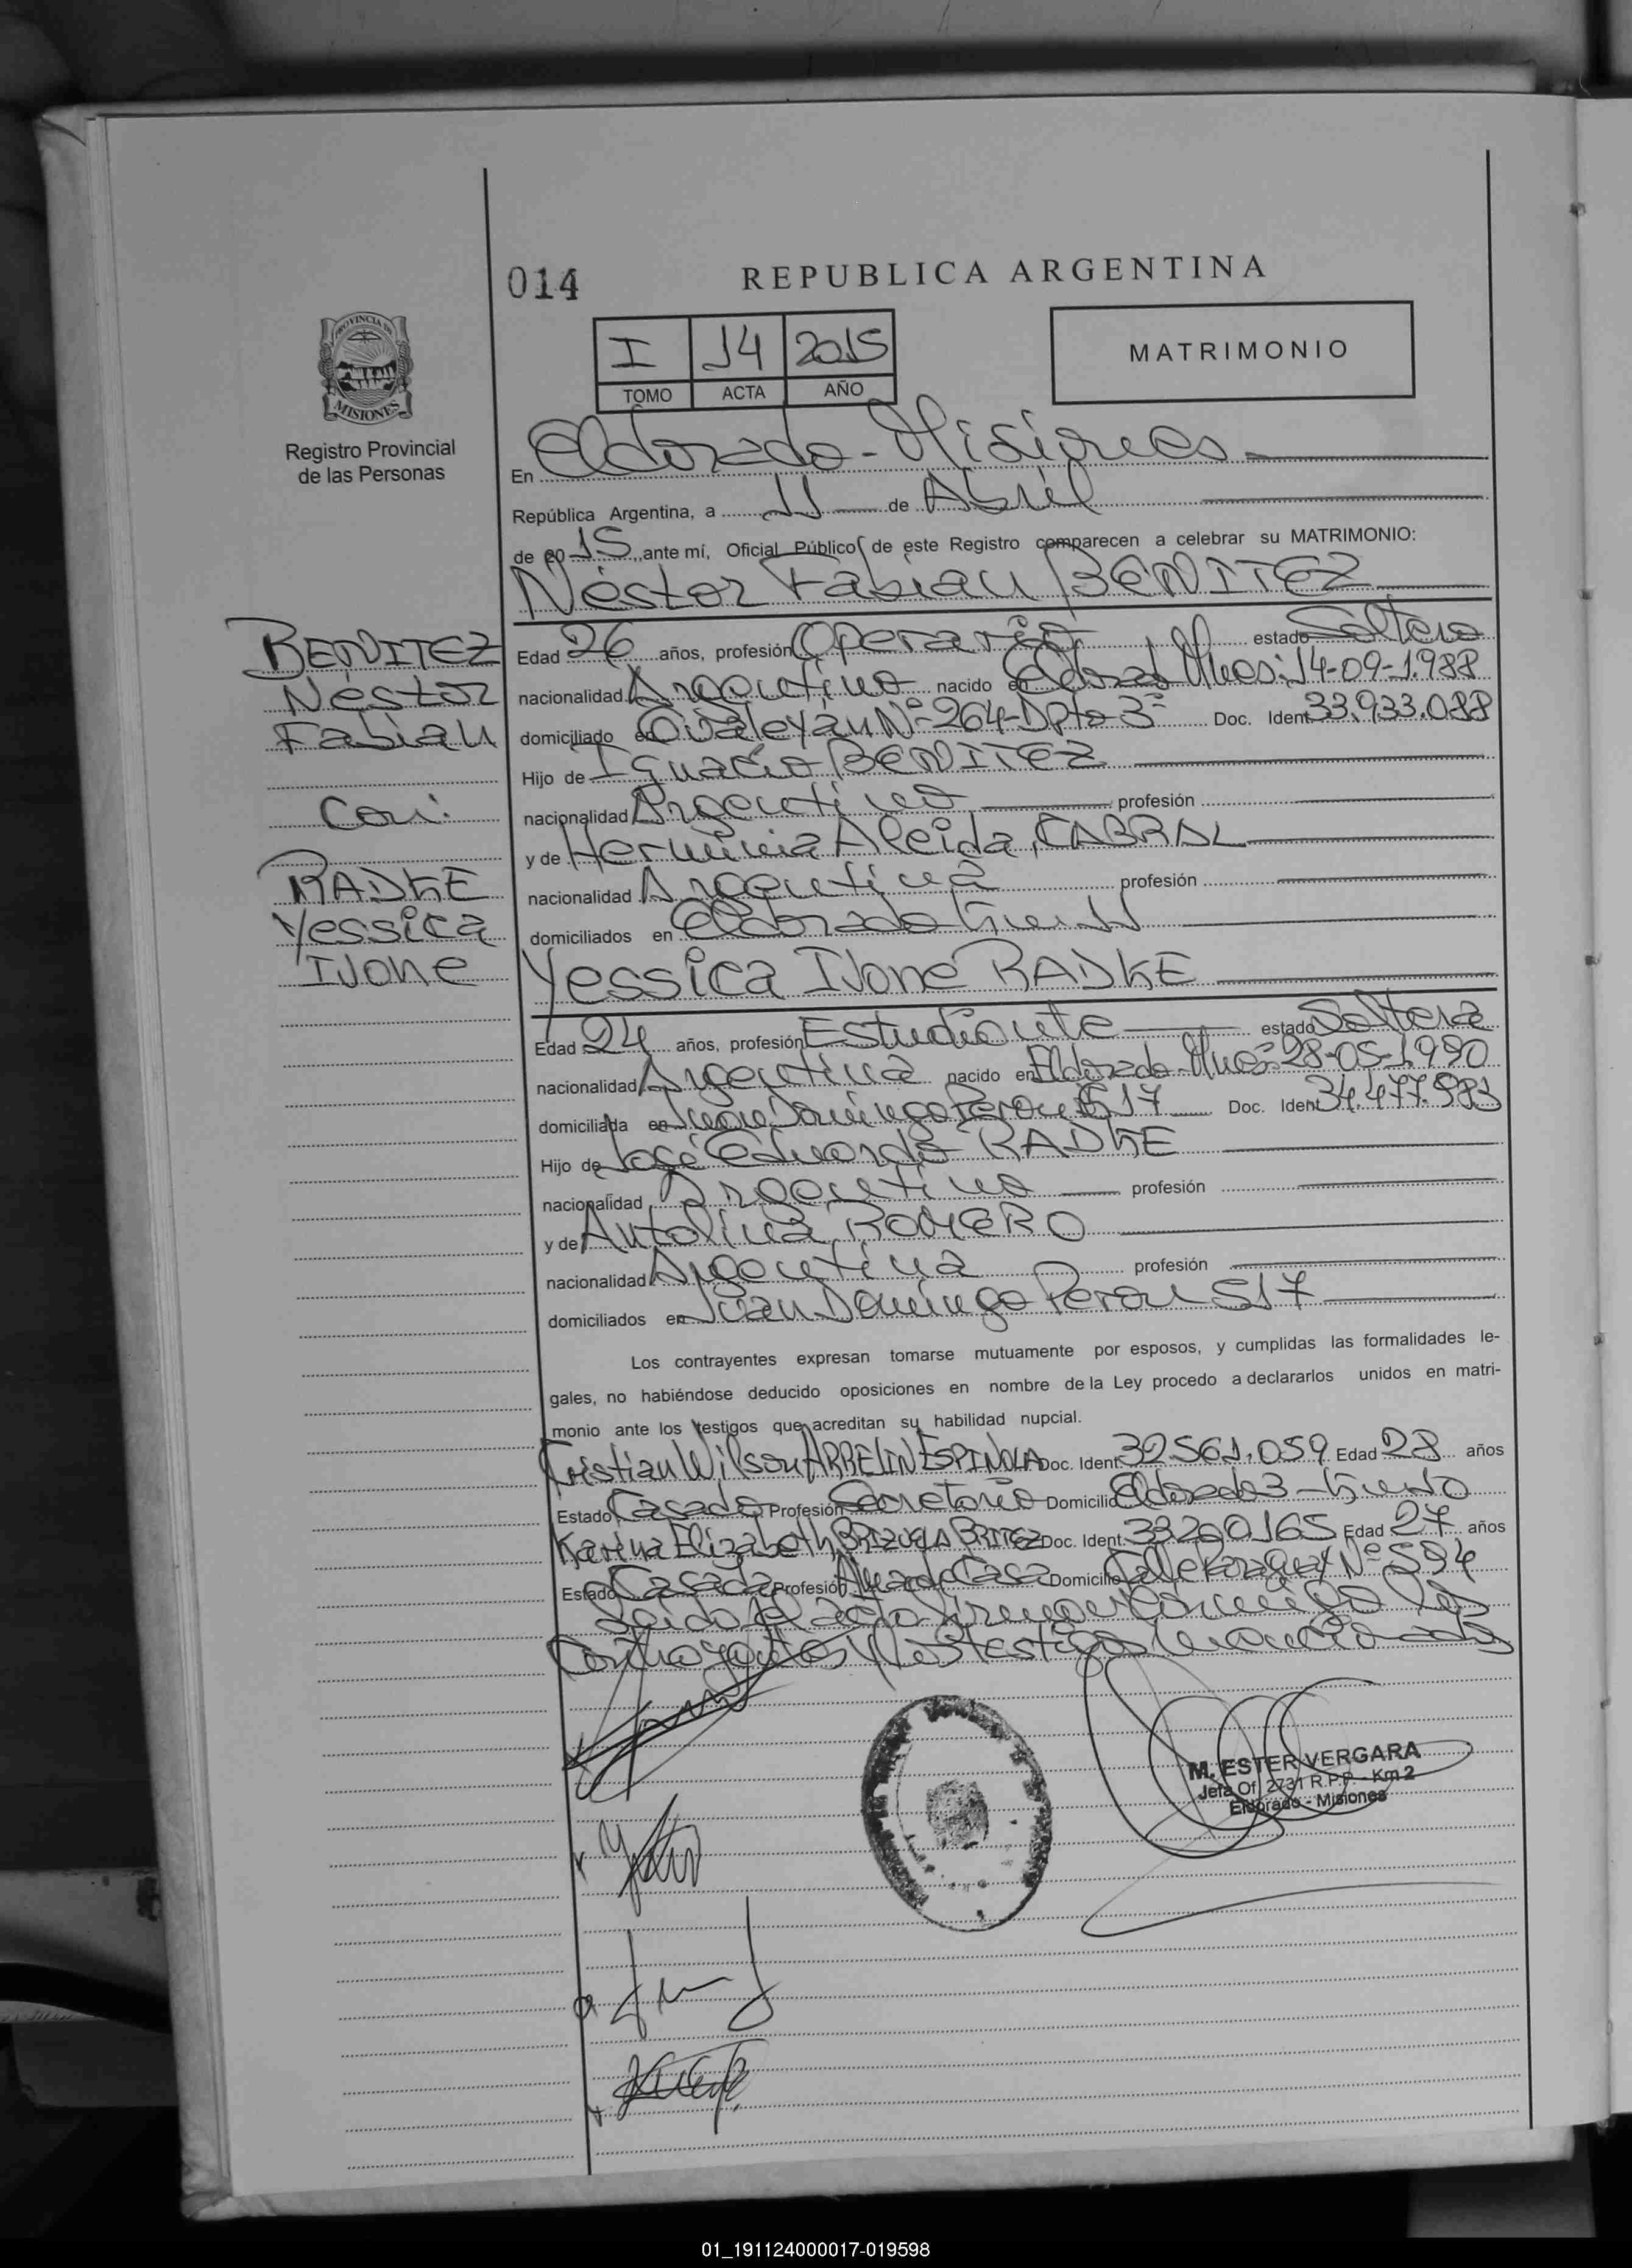 014
REPUBLICA ARGENTINA
PROVINCIA DE
MISIONES
Registro Provincial
de las Personas
I 14 2015
TOMO ACTA AÑO
MATRIMONIO
En Eldorado - Misiones
República Argentina, a 11 de Abril
de 20 15, ante mí, Oficial Público de este Registro comparecen a celebrar su MATRIMONIO:
Néstor Fabian BENITEZ
BENITEZ
Néstor
Fabian
Con:
RADKE
Yessica
Ivone
Edad 26 años, profesión Operario estado Soltero
nacionalidad Argentino nacido en Mnes: 14-09-1.988
domiciliado en Nº 264-Dpto 3 Doc. Ident. 33.933.088
Hijo de Ignacio BENITEZ
nacionalidad Argentino profesión
y de Herminia Aleida, CABRAL
nacionalidad Argentina profesión
domiciliados en Eldorado
Yessica Ivone RADKE
Edad 24 años, profesión Estudiante estado Soltera
nacionalidad Argentina nacido en Eldorado-Mnes: 28-05-1.990
domiciliada en Juan Domingo Peron 517 Doc. Ident 34.477.983
Hijo de José Eduardo RADKE
nacionalidad Argentino profesión
y de Antolina ROMERO
nacionalidad Argentina profesión
domiciliados en Juan Domingo Peron 517
Los contrayentes expresan tomarse mutuamente por esposos, y cumplidas las formalidades le-
gales, no habiéndose deducido oposiciones en nombre de la Ley procedo a declararlos unidos en matri-
monio ante los testigos que acreditan su habilidad nupcial.
Cristian Wilson ARRELIN ESPINOLA Doc. Ident. 32561.059 Edad 28 años
Estado Casado Profesión Secretario Domicilio Eldorado
Karina Elizabeth BRIZUELA BRITEZ Doc. Ident. 33260165 Edad 27 años
Estado Casada Profesión Ama de Casa Domicilio Calle Paraguay Nº 594
Leido el acto firman conmigo los
Contrayentes y los testigos mencionados
M. ESTER VERGARA
Jefa Of. 2731 R.P.P. - Km 2
Eldorado - Misiones
01_191124000017-019598